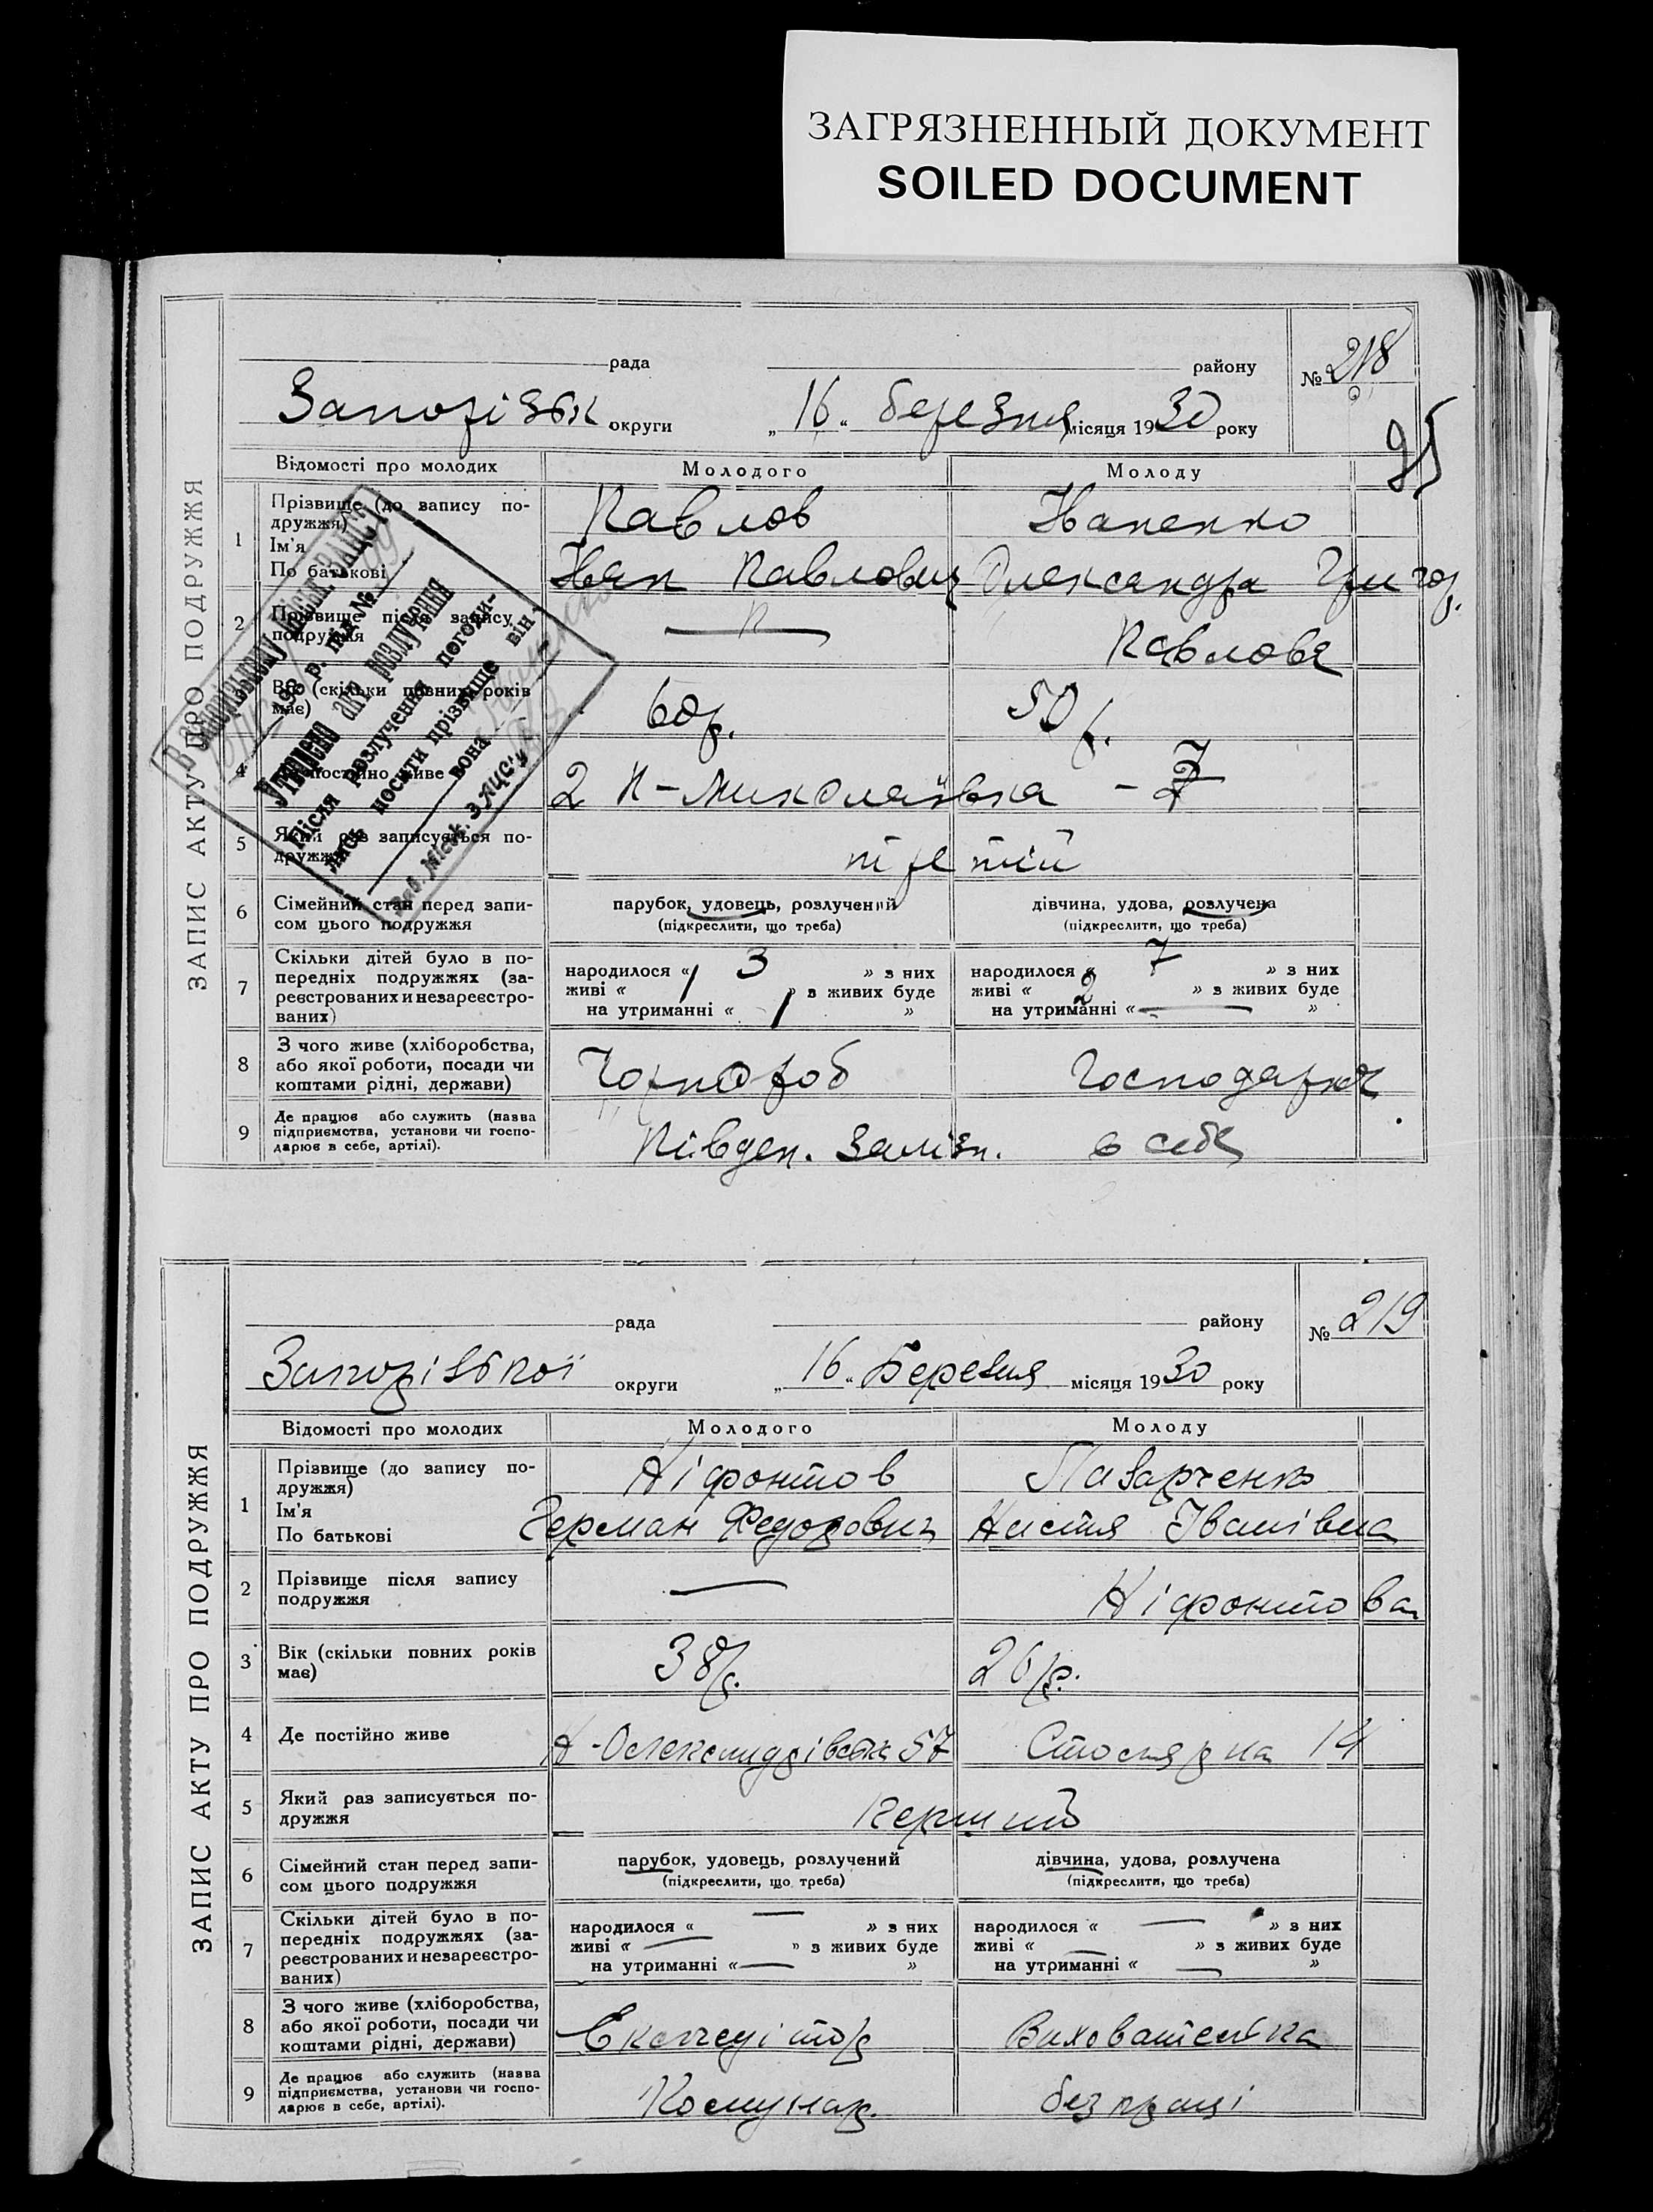 ЗАГРЯЗНЕННЫЙ ДОКУМЕНТ
SOILED DOCUMENT
ЗАПИС АКТУ ПРО ПОДРУЖЖЯ
рада району № 218
Запорізьк округи „16“ березня місяця 1930 року
95
Відомості про молодих Молодого Молоду
1 Прізвище (до запису по-
дружжя)
Ім'я
По батькові
Павлов
Павлович Олександра Григор.
2 Прізвище після запису
подружжя
Павлова
Вік (скільки повних років
має)
60р. 50р.
4 постійно живе
2 Н-Миколаївка - 7
5 Який раз записується по-
дружжя
третій
6 Сімейний стан перед запи-
сом цього подружжя
парубок, удовець, розлучений
(підкреслити, що треба)
дівчина, удова, розлучена
(підкреслити, що треба)
7 Скільки дітей було в по-
передніх подружжях (за-
реєстрованих и незареєстро-
ваних)
народилося « 3 » з них
живі « 1 » з живих буде
на утриманні « 1 »
народилося « 7 » з них
живі « 2 » з живих буде
на утриманні « — »
8 З чого живе (хліборобства,
або якої роботи, посади чи
коштами рідні, держави)
Чорнороб Господарюк
9 Де працює або служить (назва
підприємства, установи чи госпо-
дарює в себе, артілі).
Півден. Залізн. в себе
В Запорізькому міськ ЗАГСі
198 р. під №
Утворено акт розлучення
Після розлучення погоди-
лись носити прізвище він
вона
Зав. міськ. ЗАГСу
ЗАПИС АКТУ ПРО ПОДРУЖЖЯ
рада району № 219
Запорізької округи „16“ Березня місяця 1930 року
Відомості про молодих Молодого Молоду
1 Прізвище (до запису по-
дружжя)
Ім'я
По батькові
Ніфонтов Лазарченко
Герман Федорович Настя Іванівна
2 Прізвище після запису
подружжя
— Ніфонтова
3 Вік (скільки повних років
має)
38р. 26р.
4 Де постійно живе
Н-Олександрівськ 57 Столярна 14
5 Який раз записується по-
дружжя
перший
6 Сімейний стан перед запи-
сом цього подружжя
парубок, удовець, розлучений
(підкреслити, що треба)
дівчина, удова, розлучена
(підкреслити, що треба)
7 Скільки дітей було в по-
передніх подружжях (за-
реєстрованих и незареєстро-
ваних)
народилося « — » з них
живі « — » з живих буде
на утриманні « — »
народилося « — » з них
живі « — » з живих буде
на утриманні « — »
8 З чого живе (хліборобства,
або якої роботи, посади чи
коштами рідні, держави)
Експедітор Вихователька
9 Де працює або служить (назва
підприємства, установи чи госпо-
дарює в себе, артілі).
Комунар. без праці